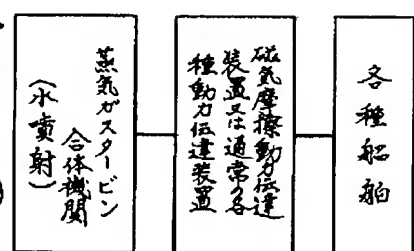 蒸気ガスタービン
合体機関
(水噴射)
磁気摩擦動力伝達
装置又は通常の各
種動力伝達装置
各種船舶